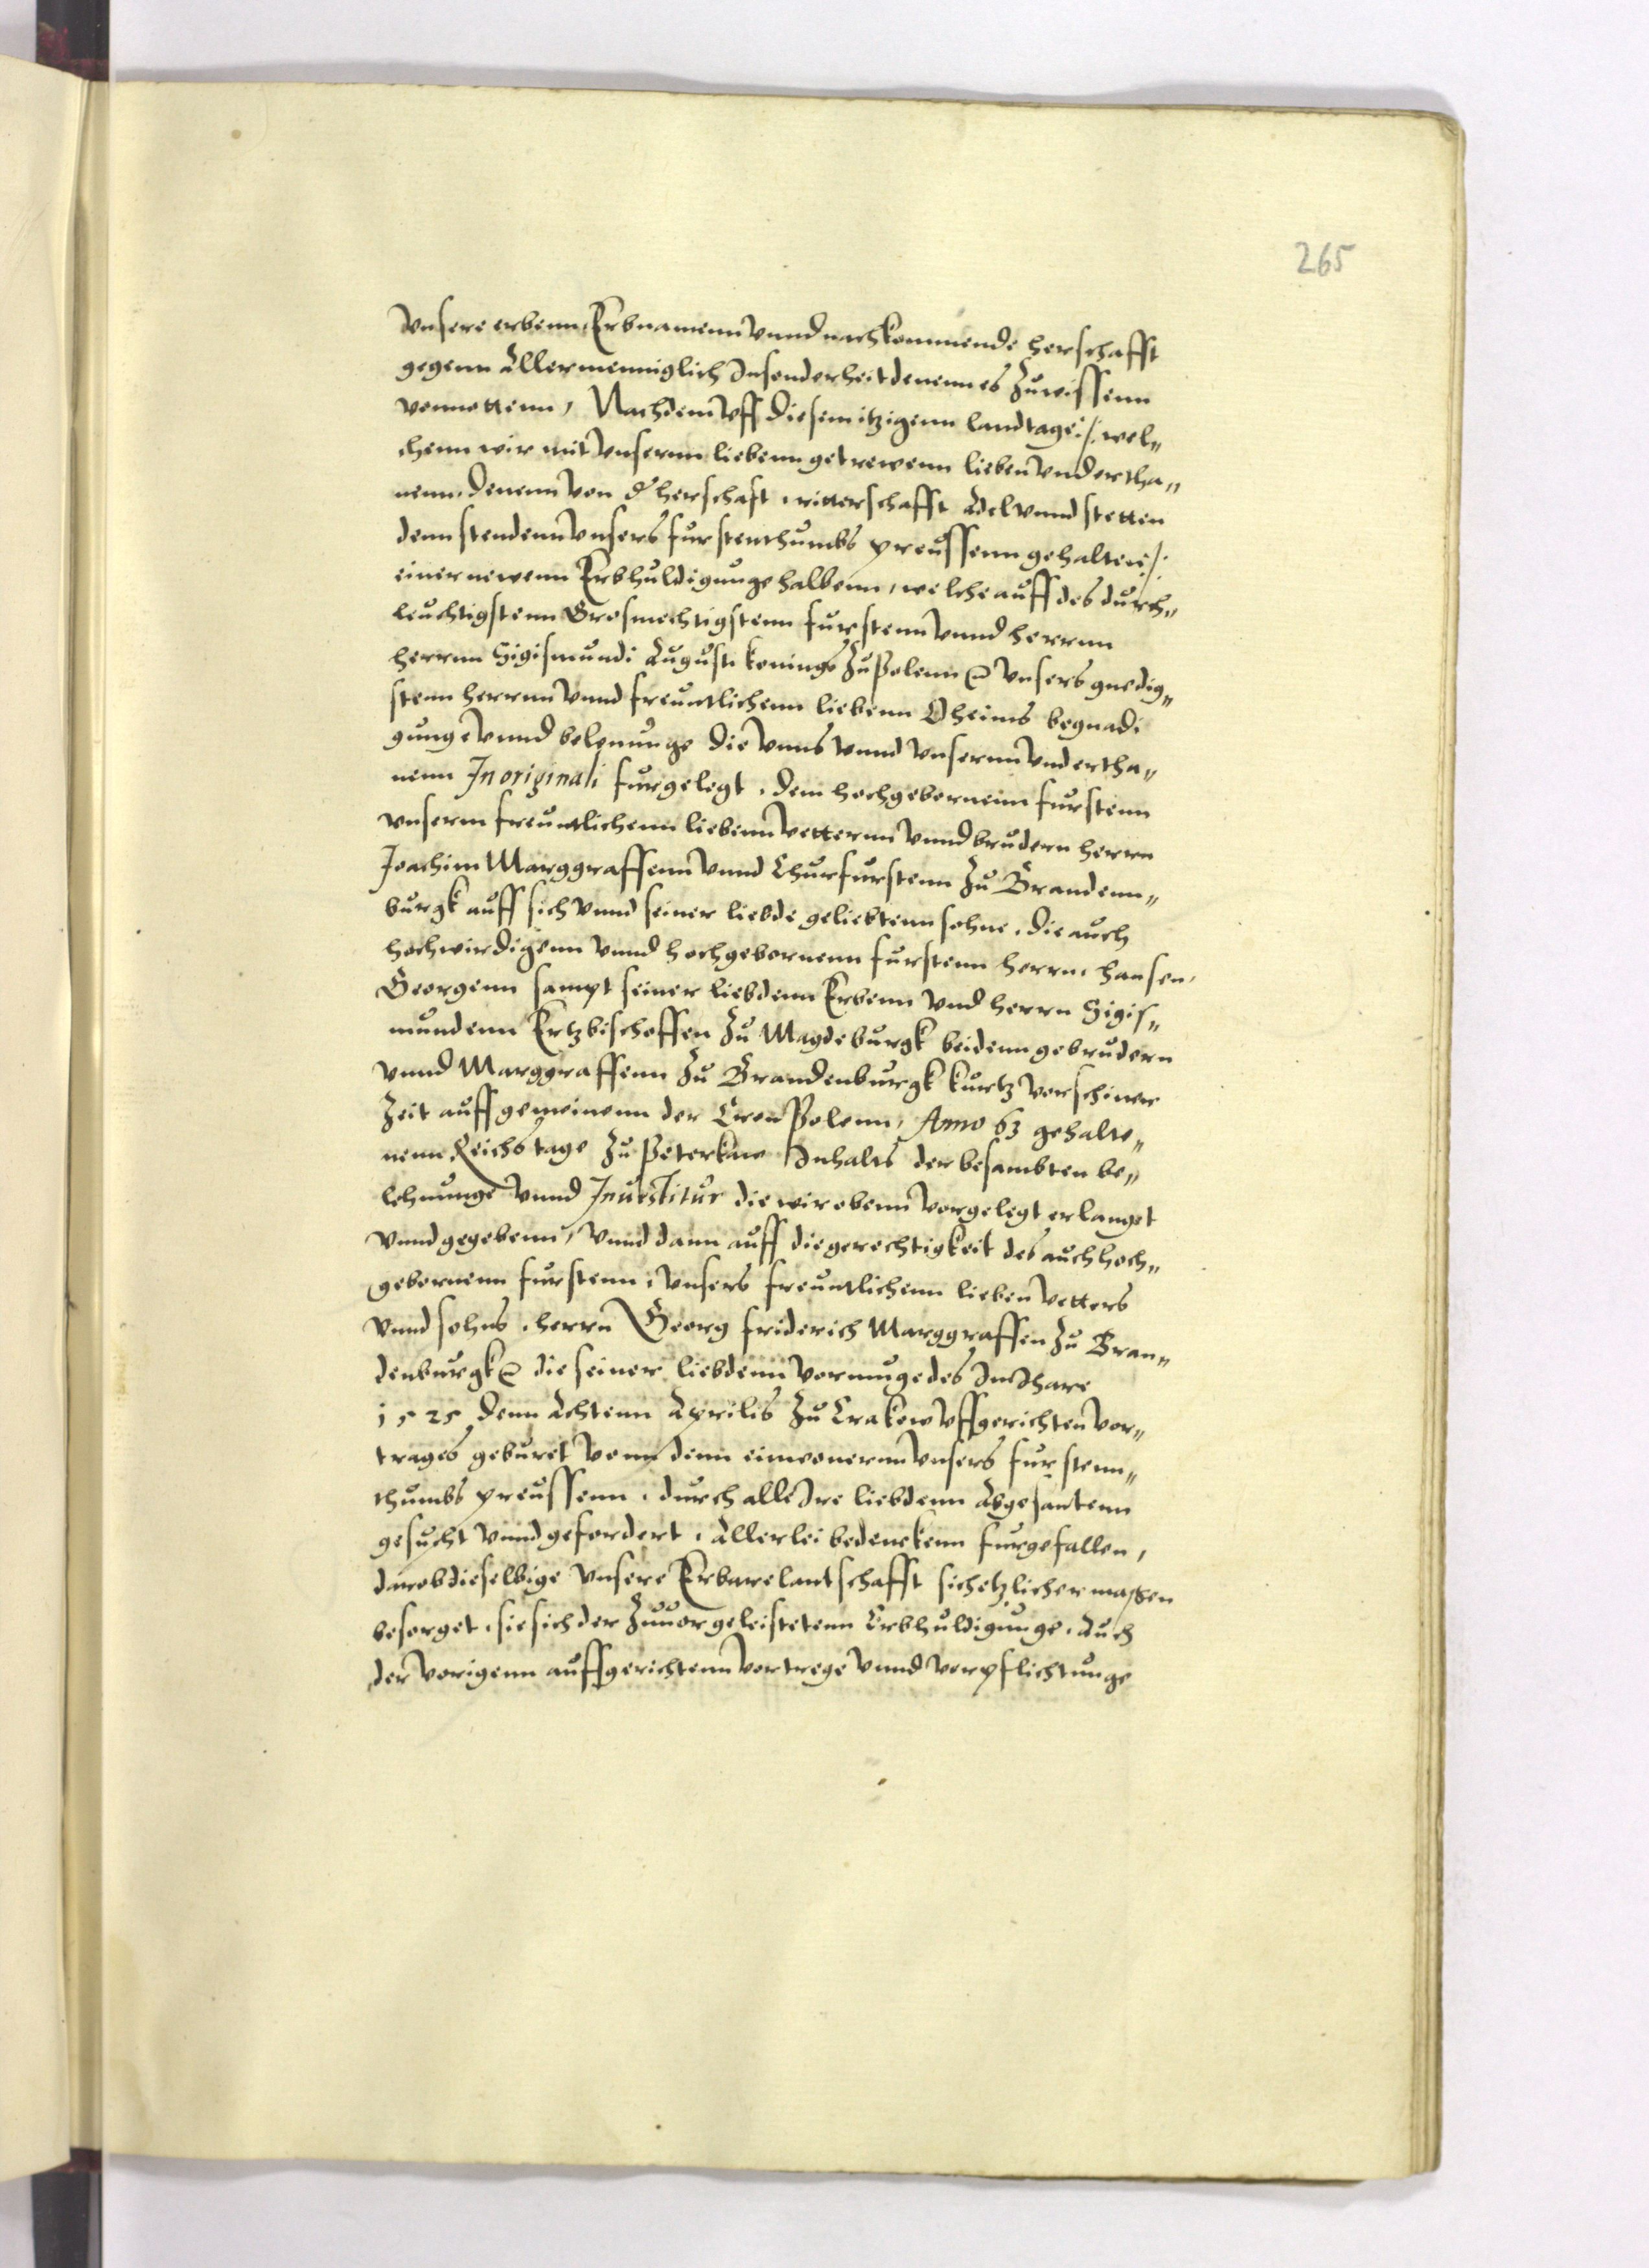 265
Vnsere erbenn, Erbnamenn vnnd nachkommende herschafft
gegenn Allermenniglich Insonderheit denenn es zuwissenn
vonnottenn, Nachdem vff diesem itzigenn landtage /: wel„
chenn wir mit vnsernn liebenn getrewenn lieben vndertha„
nenn, denenn von d' herschaft, ritterschafft Adel vnnd stetten
denn stendenn vnsers furstenthumbs preussenn gehalten :/
einer newenn Erbhuldigunge halbenn, welche auff des durch„
leuchtigstenn Grosmechtigstenn furstenn vnnd herrnn
herrnn Sigismundi Augusti konings zu Polenn etc vnsers gnedig„
stenn herrnn vnnd freuntlichenn liebenn Oheims begnadi
gunge vnnd belenunge die vnns vnnd vnsernn vndertha„
nenn In originali furgelegt, dem hochgebornenn furstenn
vnserm freuntlichenn liebenn vetternn vnnd brudern herrn
Joachim Marggraffenn vnnd Churfurstenn zu Brandenn„
burgk auff sich vnnd seiner liebde geliebtenn sohne, die auch
hochwirdigenn vnnd hochgebornenn furstenn herrn, hansen,
Georgenn sampt seiner liebdenn Erbenn vnd herrn Sigis„
mundenn Ertzbischoffen zu Magdeburgk beidenn gebrudern
vnnd Marggraffenn zu Brandenburgk kurtz verschiner
zeit auff gemeinenn der Cron Polenn, Anno 63 gehalte„
nenn Reichstage zu Peterkaw Inhalts der besambten be„
lehnunge vnnd Inuestitur die wir obenn vorgelegt erlanget
vnnd gegebenn, vnnd dann auff die gerechtigkeit des auch hoch„
gebornenn furstenn, vnsers freuntlichenn lieben vetters
vnnd sohns, herrn Georg friderich Marggraffen zu Bran„
denburgk etc die seiner liebdenn vormuge des Im Jhare
1525 denn Achtenn Aprilis zu Crakow vffgerichten vor„
trages geburet vonn denn einwonernn vnsers fursten„
thumbs preussenn, durch alle Ire liebdenn Abgesantenn
gesucht vnnd gefordert, Allerlei bedenckenn furgefallen,
darob dieselbige vnsere Erbare lantschafft sich etzlicher massen
besorget, sie sich der zuuor geleistetenn Erbhuldigunge, Auch
der vorigenn auffgerichtenn vortrege vnnd verpflichtunge